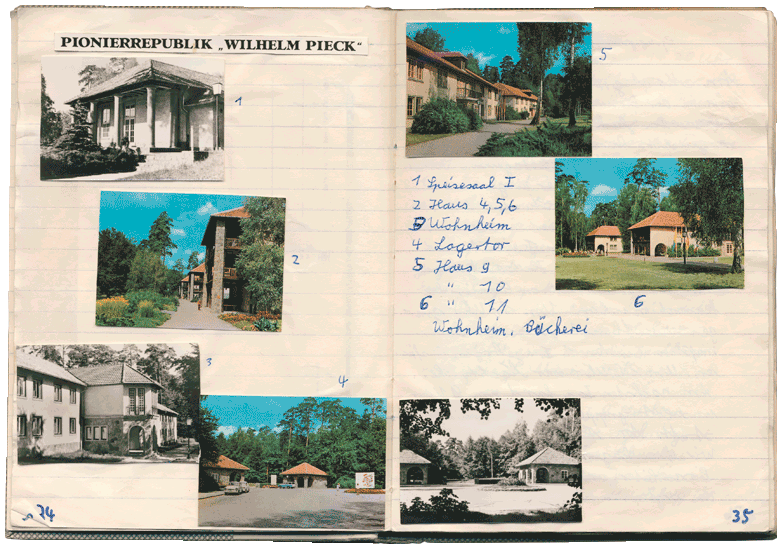 PIONIERREPUBLIK „WILHELM PIECK“
1
2
3
4
34
5
1 Speisesaal I
2 Haus 4, 5, 6
3 Wohnheim
4 Lagertor
5 Haus 9
" 10
6 " 11
Wohnheim, Bächerei
6
35